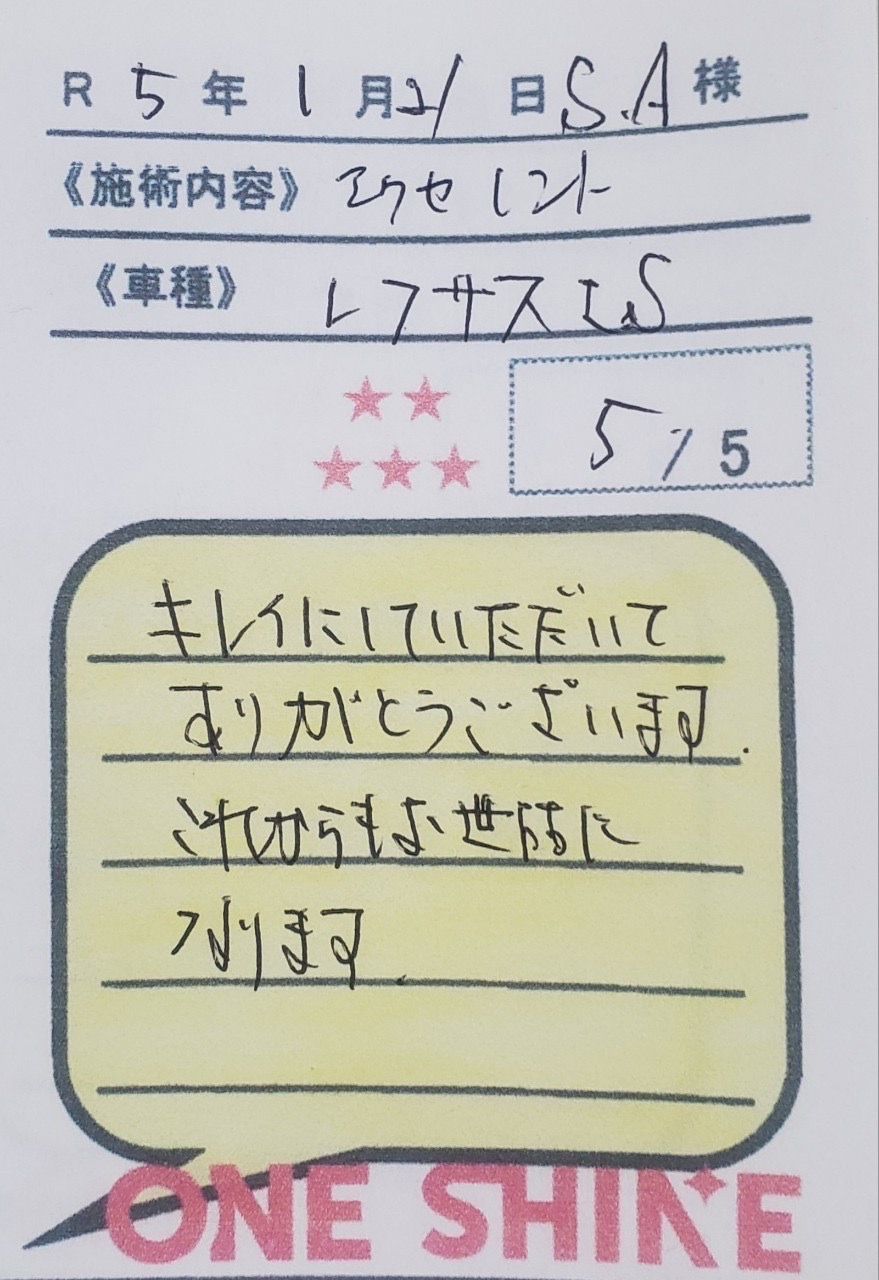 R 5年 1月21日 S.A様
《施術内容》 エクセレント
《車種》 レクサス IS
5/5
キレイにしていただいて
ありがとうございます.
これからもお世話に
なります.
ONE SHINE